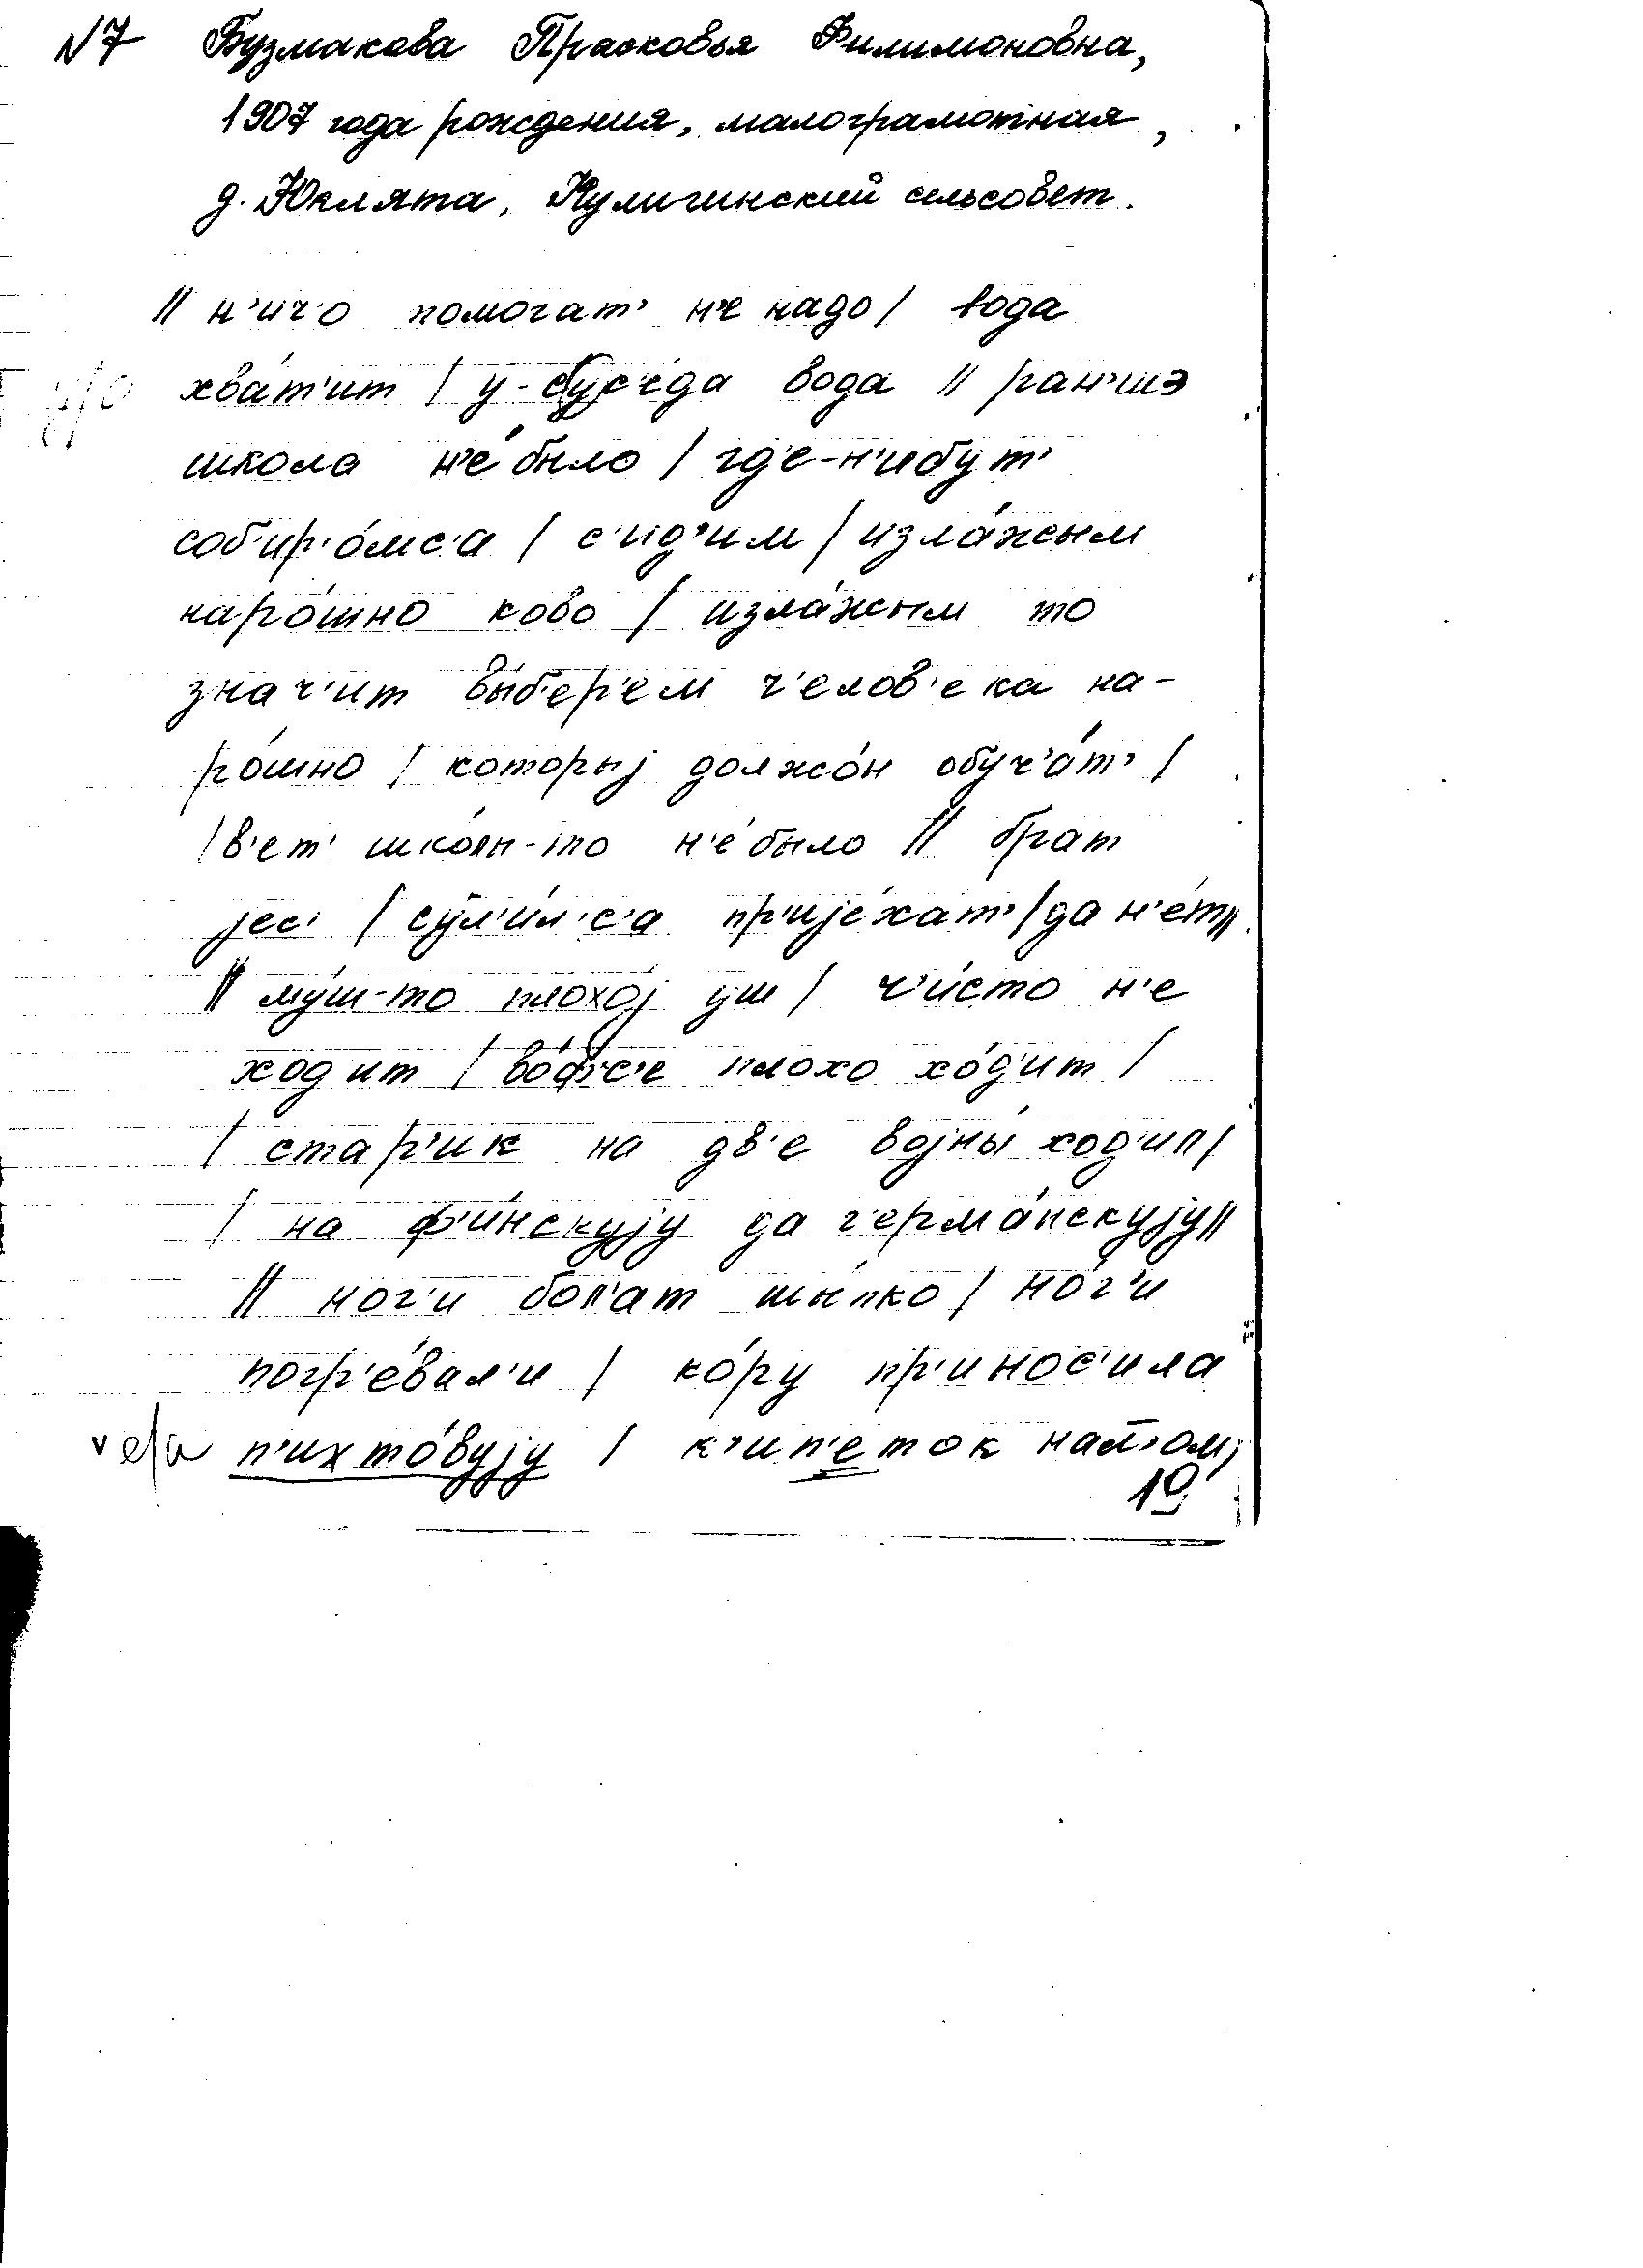 N7 Бузмакова Прасковья Филимоновна,
1907 года рождения, малограмотная,
д. Юклята, Кулигинский сельсовет.
|| н'ич'о помогат' н'е надо / вода
хва́т'ит / у-сус'е́да вода || ран'шэ
школа н'е́ было / гд'е-н'ибут'
соб'ир'о́мс'а / с'ид'им / изла́жым
наро́шно ково / изла́жым то
знач'ит вы́б'ер'ем ч'елов'ека на-
ро́шно / которыј должо́н обуч'а́т' /
/ в'ет' шко́лы-то н'е́ было || брат
јес' / сул'и́л'с'а пр'ије́хат' / да н'е́т ||
|| му́ш-то плохој уш / ч'и́сто н'е
ходит / во́фс'е плохо хо́д'ит /
/ стар'ик на дв'е војны́ ход'ил /
/ на ф'и́нскују да г'ерма́нскују ||
|| ног'и бол'ат шы́пко / но́г'и
погр'е́вал'и / ко́ру пр'инос'ила
v е/а п'ихто́вују / к'ип'еток нал'јом,
19